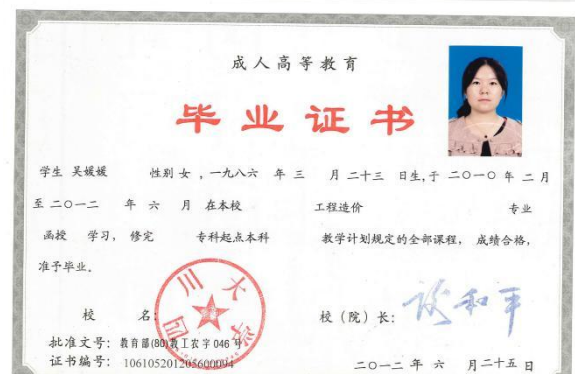 成人高等教育
毕业证书
学生 吴媛媛 性别 女 ，一九八六 年 三 月 二十三 日生，于 二〇一〇 年 二 月
至 二〇一二 年 六 月 在本校 工程造价 专业
函授 学习， 修完 专科起点本科 教学计划规定的全部课程， 成绩合格，
准予毕业。
四川大学
校 名： 校（院）长：
批准文号：教育部(80)教工农字 046 号
证书编号：106105201205600094 二〇一二 年 六 月二十五 日